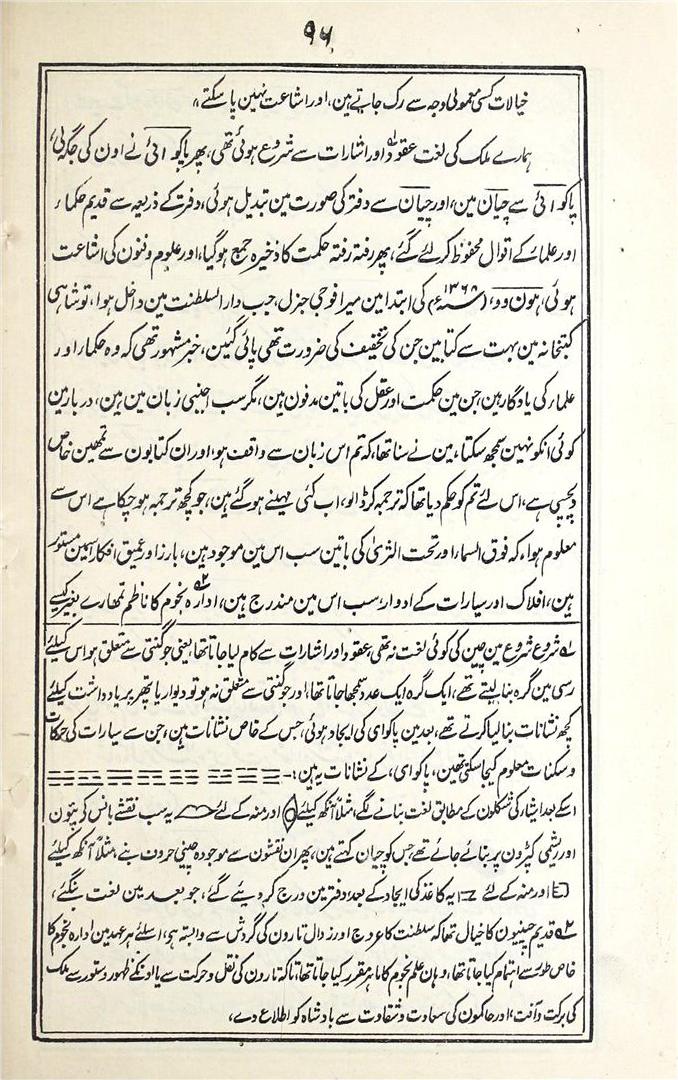 ۹۵
خیالات کسی معمولی وجہ سے رک جاتے ہین، اور اشاعت نہین پا سکتے،
ہمارے ملک کی لغت عقود اور اشارات سے شروع ہوئی تھی، پھر پاکوائی نے اون کی جگہ لی،
پاکوائی سے چیان مین، اور چیان سے دفتر کی صورت مین تبدیل ہوئی، دفتر کے ذریعہ سے قدیم حکماء
اور علماء کے اقوال محفوظ کر لئے گئے، پھر رفتہ رفتہ حکمت کا ذخیرہ جمع ہو گیا، اور علوم و فنون کی اشاعت
ہوئی، ہون وو، (۱۳۶۸ء) کی ابتدا مین میرا فوجی جنرل، جب دار السلطنت مین داخل ہوا، تو شاہی
کتبخانہ مین بہت سے کتابین جن کی تخفیف کی ضرورت تھی پائی گئین، خبر مشہور تھی کہ وہ حکماء اور
علماء کی یادگار ہین، جن مین حکمت اور عقل کی باتین مدفون ہین، مگر سب اجنبی زبان مین ہین، دربار مین
کوئی انکو نہین سمجھ سکتا، مین نے سنا تھا، کہ تم اس زبان سے واقف ہو، اور ان کتابون سے تمھین خاص
دلچسپی ہے، اس لئے تم کو حکم دیا تھا کہ ترجمہ کر ڈالو، اب کئی مہینے ہو گئے ہین، جو کچھ ترجمہ ہو چکا ہے اس سے
معلوم ہوا، کہ فوق السماء اور تحت الثریٰ کی باتین سب اس مین موجود ہین، بارز اور عمیق افکار اسمین مستور
ہین، افلاک اور سیارات کے ادوار، سب اس مین مندرج ہین، ادارہ نجوم کا ناظم تمھارے بغیر کیسے
۱؎ شروع شروع مین چین کی کوئی لغت نہ تھی، عقود اور اشارات سے کام لیا جاتا تھا، یعنی جو گنتی سے متعلق ہو اس کیلئے
رسی مین گرہ بنا لیتے تھے، ایک گرہ ایک عدد سمجھا جاتا تھا، اور جو گنتی سے متعلق نہ ہو تو دیوار یا پتھر پر یادداشت کیلئے
کچھ نشانات بنا لیا کرتے تھے، بعد مین پاکوای کی ایجاد ہوئی، جس کے خاص نشانات ہین، جن سے سیارات کی حرکات
و سکنات معلوم کیجا سکتی تھین، پاکوای، کے نشانات یہ ہین:-
اسکے بعد اشیار کی شکلون کے مطابق لغت بنانے لگے، مثلاً آنکھ کیلئے اور منہ کے لئے یہ سب نقشے بانس کی پتیون
اور ریشمی کپڑون پر بنائے جاتے تھے جس کو چیان کہتے ہین، پھر ان نقشون سے موجودہ چینی حروف بنے، مثلاً آنکھ کیلئے
اور منہ کے لئے یہ کاغذ کی ایجاد کے بعد، دفتر مین درج کر دیئے گئے، جو بعد مین لغت بنگئے،
۲؎ قدیم چینیون کا خیال تھا کہ سلطنت کا عروج اور زوال تارون کی گردش سے وابستہ ہی، اسلئے ہر عہد مین ادارہ نجوم کا
خاص طور سے اہتمام کیا جاتا تھا، وہان علم نجوم کا ماہر مقرر کیا جاتا تھا، تاکہ تارون کی نقل و حرکت سے یا اونکے ظہور و ستور سے ملک
کی برکت و آفت، اور حاکمون کی سعادت و شقاوت سے بادشاہ کو اطلاع دے،